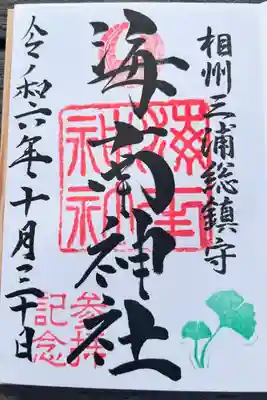 相州三浦総鎮守
海南神社
令和六年十月三十日
参拝
記念